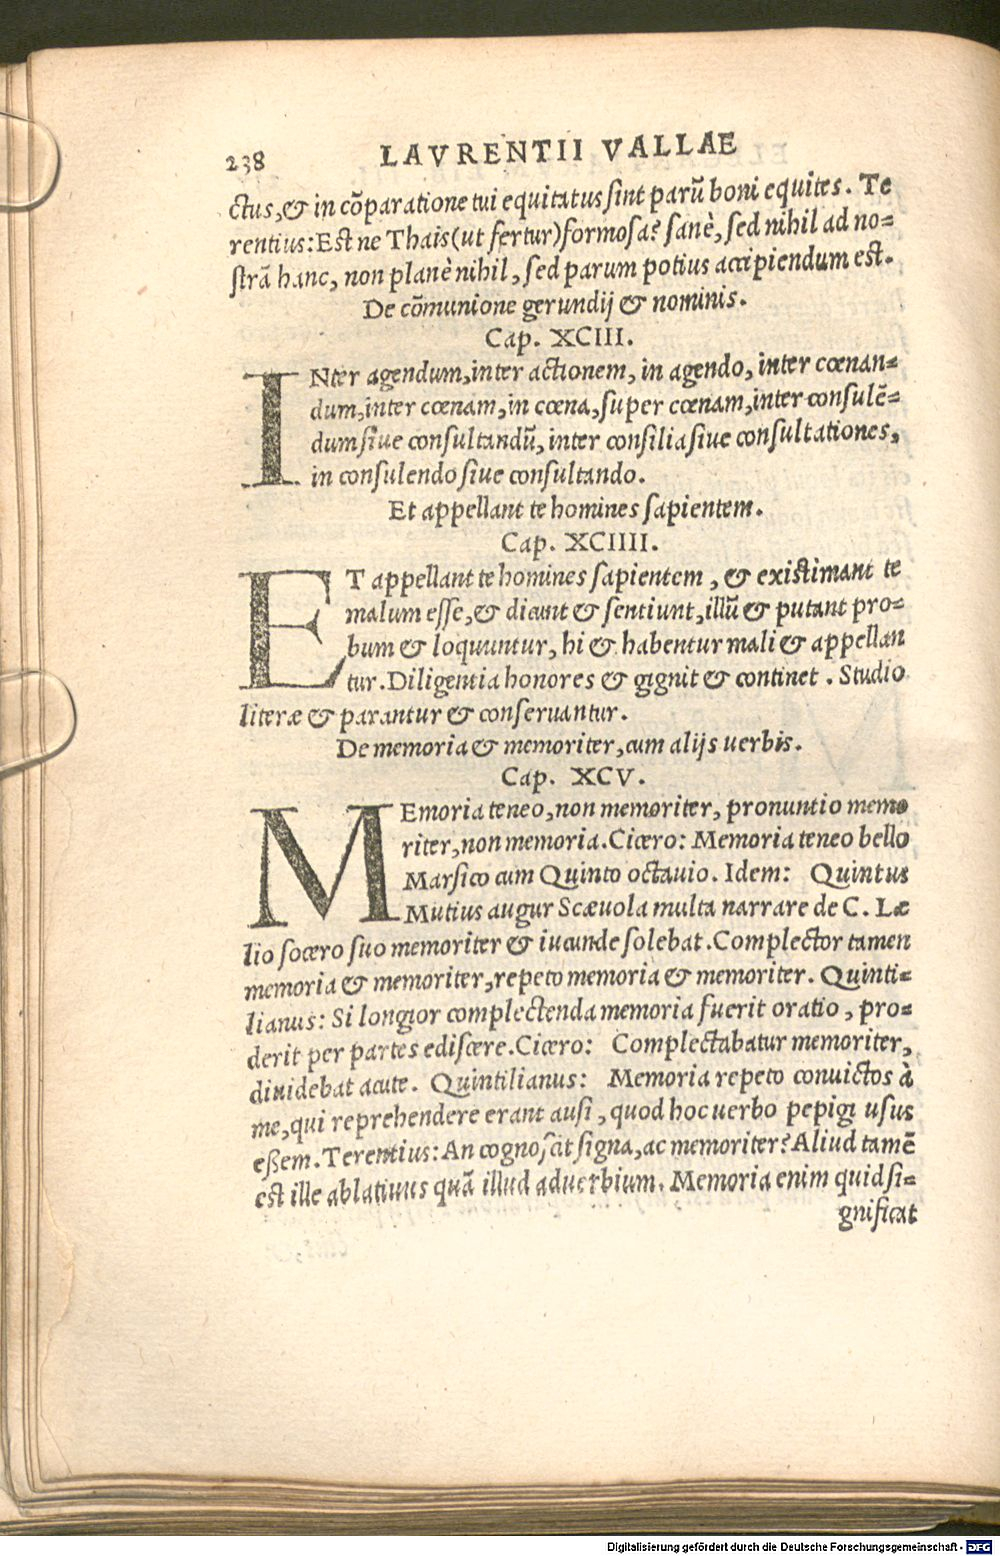 238 LAVRENTII VALLAE
ctus,& in cõparatione tui equitatus sint parũ boni equites. Te
rentius:Est ne Thais(ut fertur)formosa? sanè, sed nihil ad no=
strã hanc, non planè nihil, sed parum potius accipiendum est.
De cõmunione gerundij & nominis.
Cap. XCIII.
INter agendum,inter actionem, in agendo, inter cœnan=
dum,inter cœnam, in cœna, super cœnam,inter consulẽ=
dum siue consultandũ, inter consilia siue consultationes,
in consulendo siue consultando.
Et appellant te homines sapientem.
Cap. XCIIII.
ET appellant te homines sapientem, & existimant te
malum esse,& dicunt & sentiunt,illũ & putant pro=
bum & loquuntur, hi & habentur mali & appellan
tur.Diligentia honores & gignit & continet. Studio
literæ & parantur & conseruantur.
De memoria & memoriter,cum alijs uerbis.
Cap. XCV.
MEmoria teneo,non memoriter, pronuntio memo
riter,non memoria.Cicero: Memoria teneo bello
Marsico cum Quinto octauio. Idem: Quintus
Mutius augur Scæuola multa narrare de C. Læ
lio socero suo memoriter & iucunde solebat.Complector tamen
memoria & memoriter,repeto memoria & memoriter. Quinti=
lianus: Si longior complectenda memoria fuerit oratio, pro=
derit per partes ediscere.Cicero: Complectabatur memoriter,
diuidebat acute. Quintilianus: Memoria repeto conuictos à
me,qui reprehendere erant ausi, quod hoc uerbo pepigi usus
eßem.Terentius:An cognoscit signa,ac memoriter?Aliud tamẽ
est ille ablatiuus quã illud aduerbium. Memoria enim quid si=
gnificat
Digitalisierung gefördert durch die Deutsche Forschungsgemeinschaft - DFG